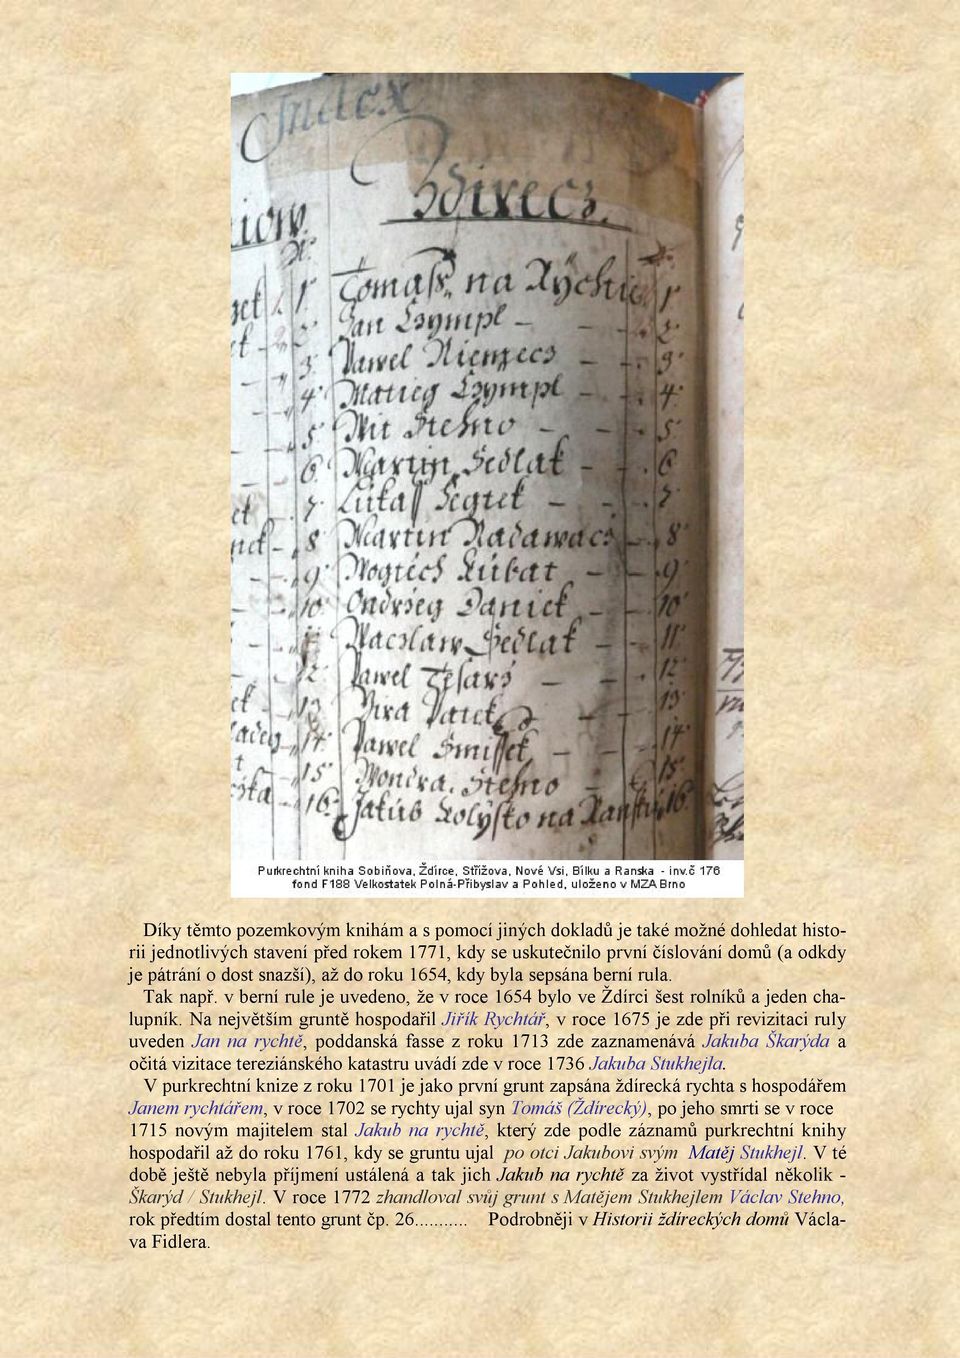 Index
Zdirecz.
iow.
N.
1. Tomass na Rychtie 1
2. Jan Czympl – – – 2.
3. Pawel Niemecz – – 3.
4. Matieg Czympl – – 4.
5. Wit Stehno – – – 5.
6. Martin Sedlak – – 6.
7. Lukass Segtek – – 7.
8. Martin Nadawacz – 8
9. Wogtech Kubat – – 9.
10. Ondrzieg Daniek – – 10
11. Waczlaw Sedlak – – 11.
12. Pawel Tesarz – – 12.
13 Jira Vacek – – 13
14. Pawel Smissek – – 14
15. Wondra Stehno – – 15.
16. Jakub Kolysko na Ransku 16.
Purkrechtní kniha Sobiňova, Ždírce, Střížova, Nové Vsi, Bílku a Ranska - inv.č 176
fond F188 Velkostatek Polná-Přibyslav a Pohled, uloženo v MZA Brno
Díky těmto pozemkovým knihám a s pomocí jiných dokladů je také možné dohledat histo-
rii jednotlivých stavení před rokem 1771, kdy se uskutečnilo první číslování domů (a odkdy
je pátrání o dost snazší), až do roku 1654, kdy byla sepsána berní rula.
Tak např. v berní rule je uvedeno, že v roce 1654 bylo ve Ždírci šest rolníků a jeden cha-
lupník. Na největším gruntě hospodařil Jiřík Rychtář, v roce 1675 je zde při revizitaci ruly
uveden Jan na rychtě, poddanská fasse z roku 1713 zde zaznamenává Jakuba Škarýda a
očitá vizitace tereziánského katastru uvádí zde v roce 1736 Jakuba Stukhejla.
V purkrechtní knize z roku 1701 je jako první grunt zapsána ždírecká rychta s hospodářem
Janem rychtářem, v roce 1702 se rychty ujal syn Tomáš (Ždírecký), po jeho smrti se v roce
1715 novým majitelem stal Jakub na rychtě, který zde podle záznamů purkrechtní knihy
hospodařil až do roku 1761, kdy se gruntu ujal po otci Jakubovi svým Matěj Stukhejl. V té
době ještě nebyla příjmení ustálená a tak jich Jakub na rychtě za život vystřídal několik -
Škarýd / Stukhejl. V roce 1772 zhandloval svůj grunt s Matějem Stukhejlem Václav Stehno,
rok předtím dostal tento grunt čp. 26... Podrobněji v Historii ždíreckých domů Václa-
va Fidlera.